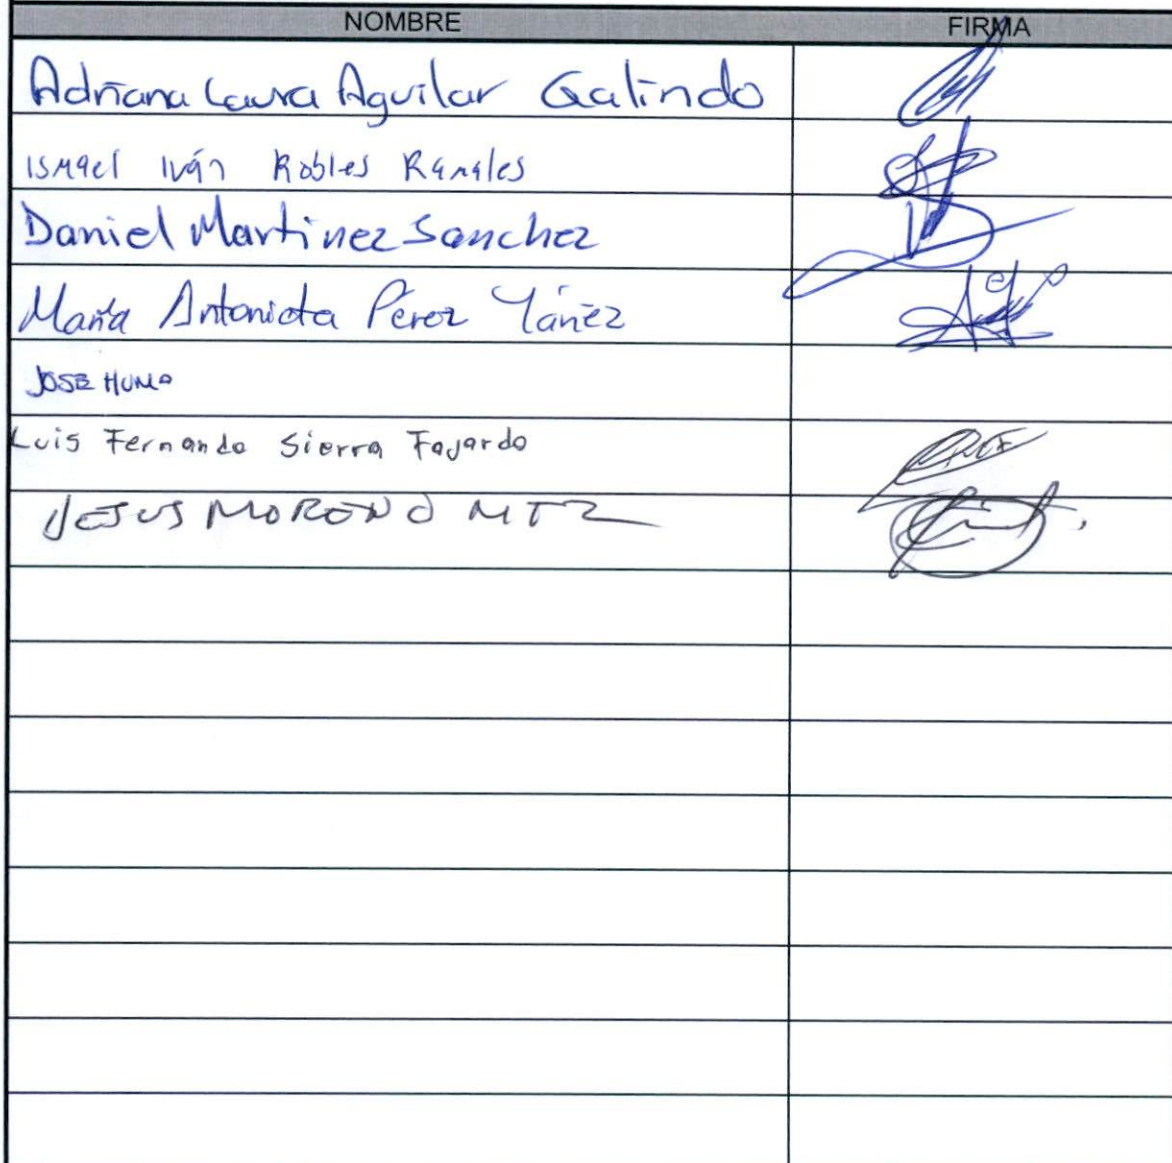 NOMBRE FIRMA
Adriana Laura Aguilar Galindo
Ismael Iván Robles
Daniel Martinez Sanchez
María Antonieta Pérez Yáñez
JOSE
Luis Fernando Sierra Fajardo
JESUS MORENO MTZ